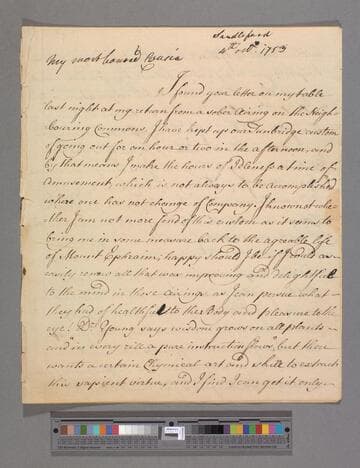 Sandleford
4th octbr 1753
My most honour'd Cousin
I found your letter on my table
last night at my return from a sober airing on the Neigh-
bouring Commons. I have kept up our Tunbridge custom
of going out for an hour or two in the afternoon, and
by that means I make the hours of Idleness a time of
amusement, which is not always to be accomplished
where one has not change of Company. I know not whe-
ther I am not more fond of this custom as it seems to
bring me in some measure back to the agreable life
of Mount Ephraim; happy should I be if I could as
easily renew all that was improving and delightfull
to the mind in those airings as I can pursue what
they had of healthfull to the Body and pleasure to the
eye. Dr Young says wisdom grows on all plants
and "in every rill a pure instruction flows", but there
wants a certain Chymical art and skill to extract
this sapient virtue, and I find I can get it only